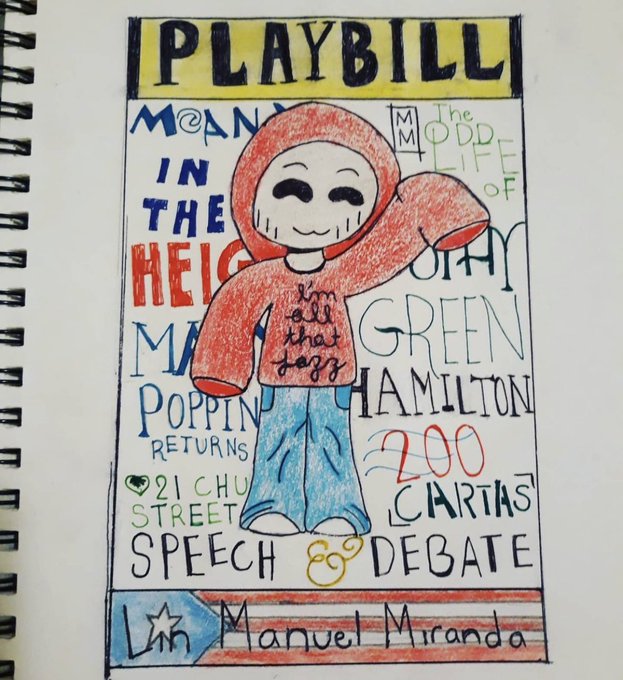 PLAYBILL
MOANA
IN
THE
HEIG
MA
POPPIN
RETURNS
21 CHU
STREET
MM
The
ODD
LIFE
OF
OTHY
GREEN
HAMILTON
200
CARTAS
I'm
all
that
jazz
SPEECH & DEBATE
Lin Manuel Miranda